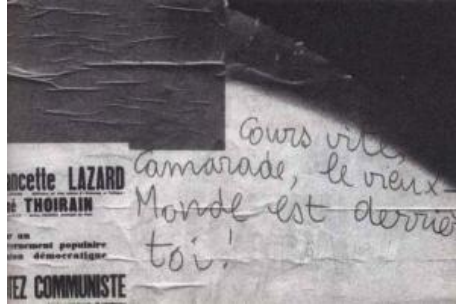 Cours vite,
Camarade, le vieux
Monde est derriè
toi !
ncette LAZARD
é THOIRAIN
r un
ernement populaire
on démocratique
TEZ COMMUNISTE